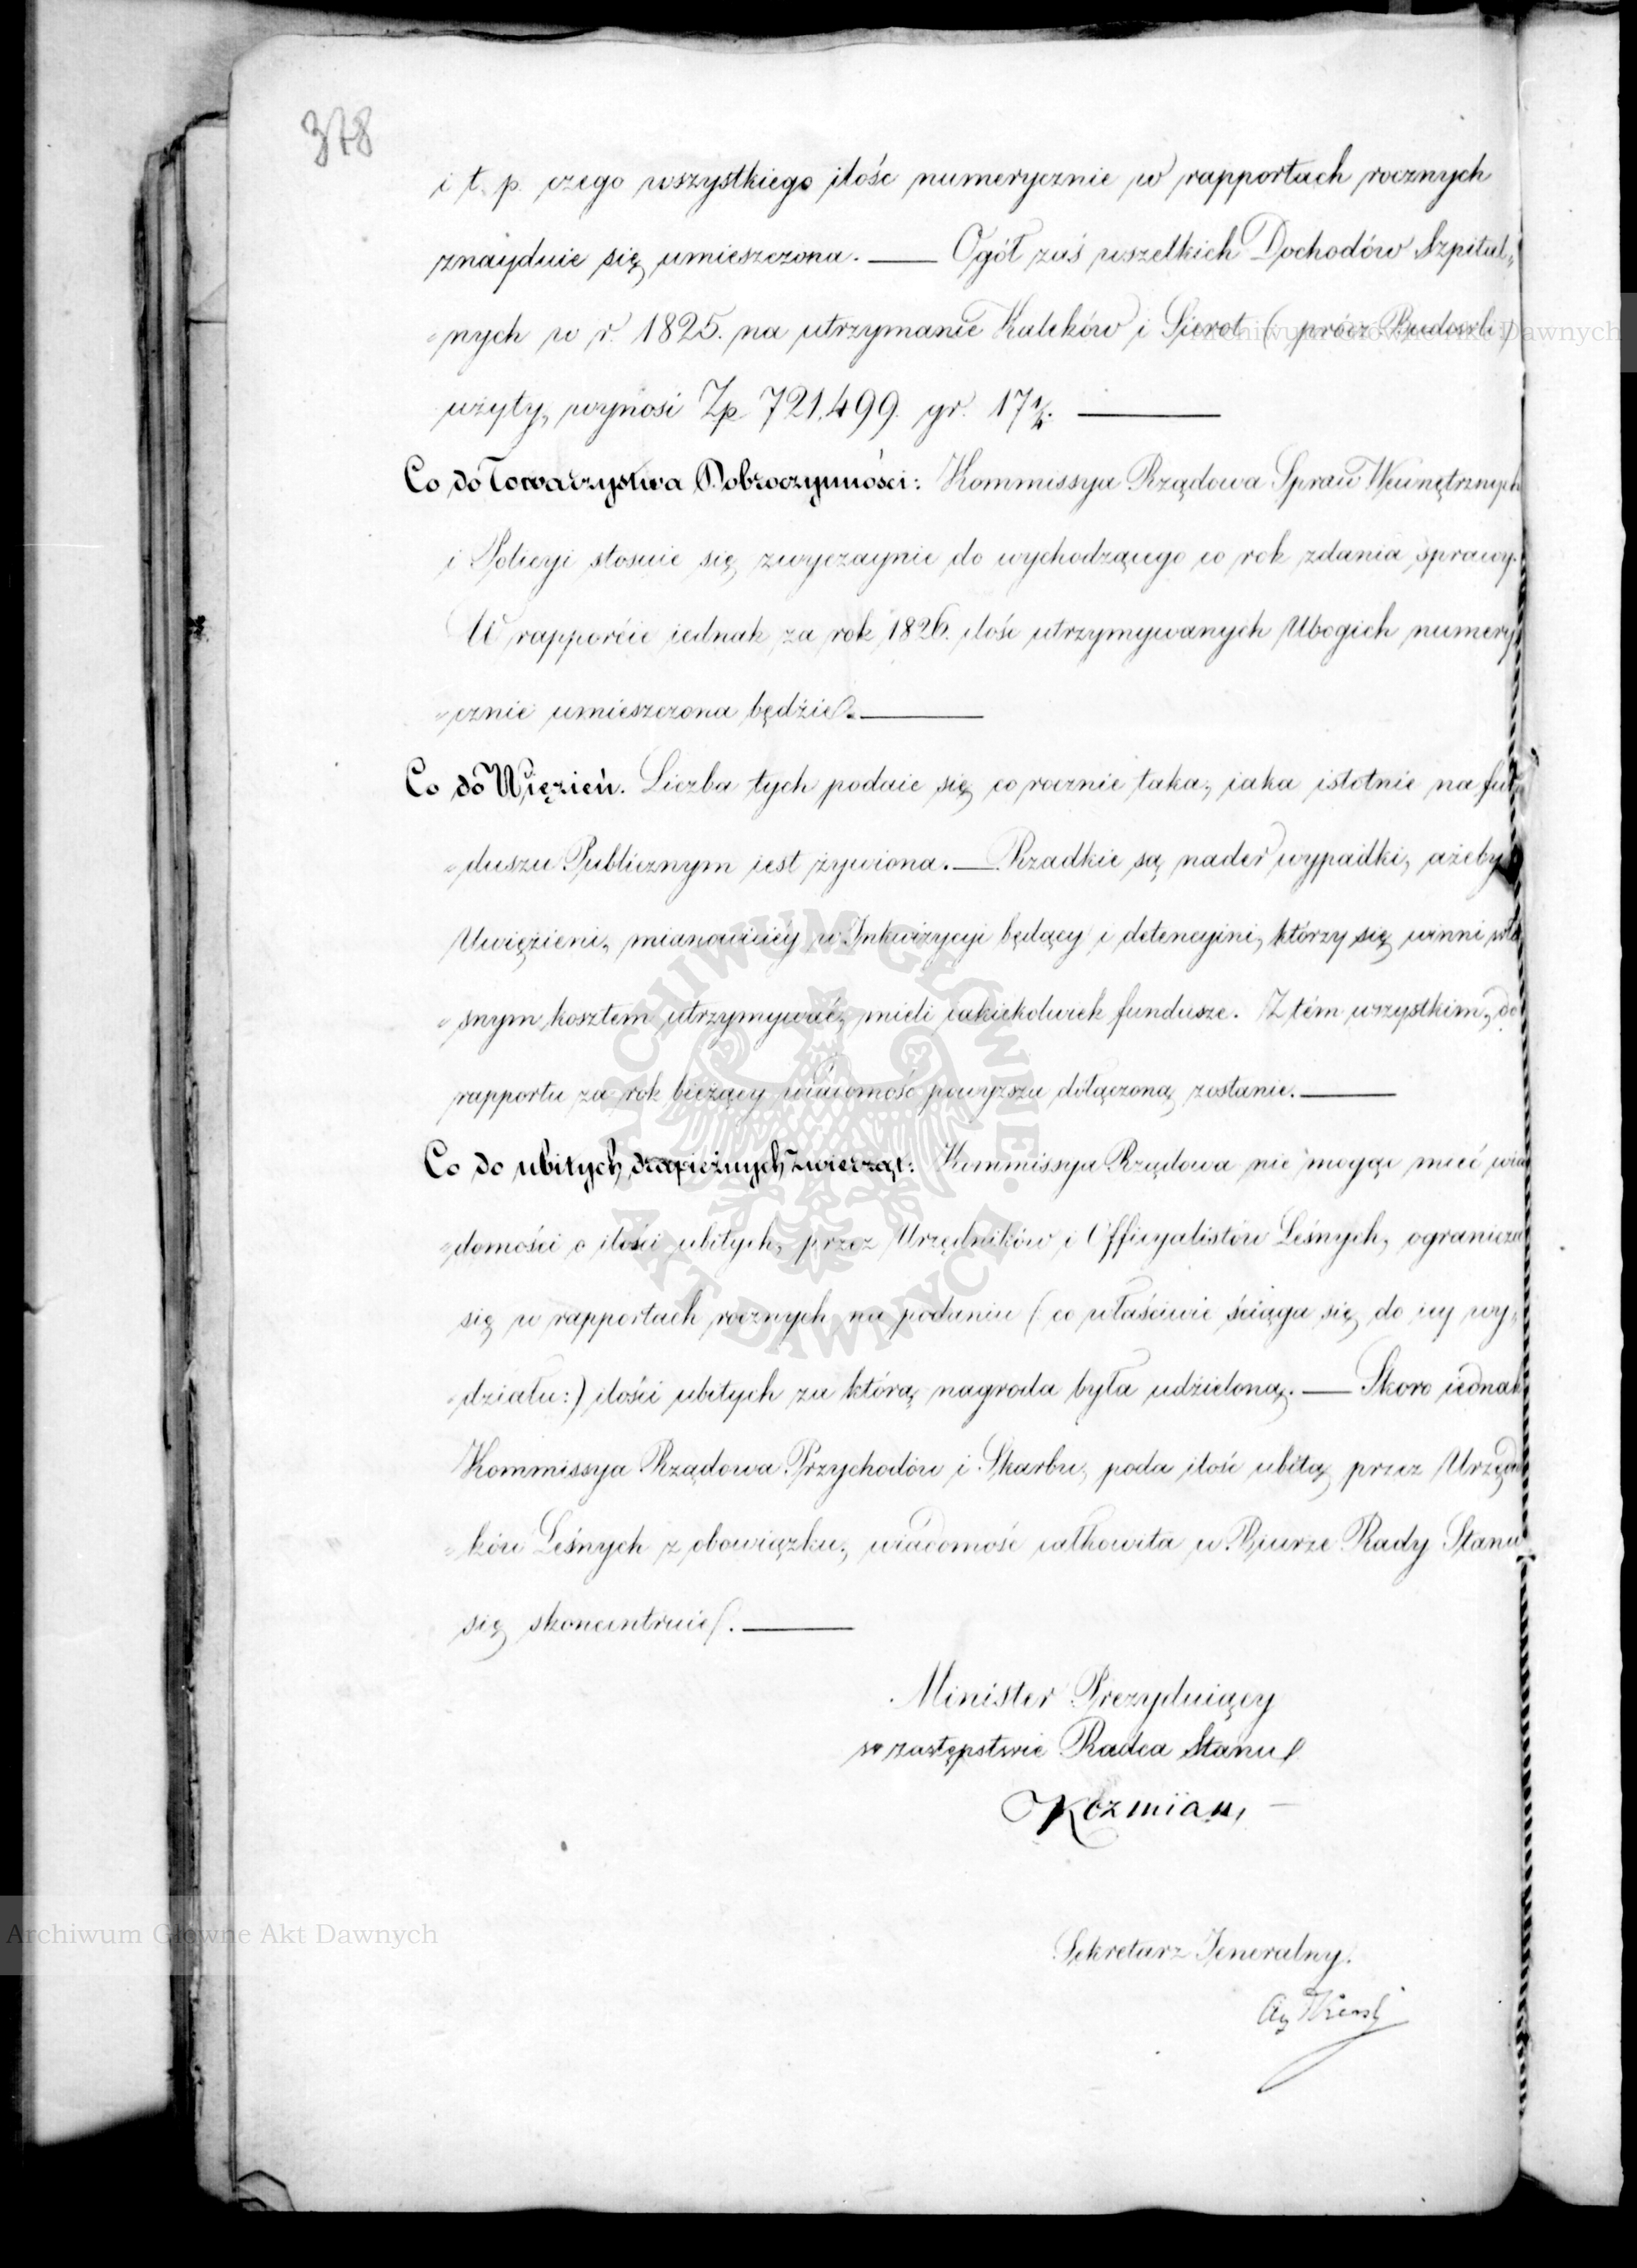 378
i t. p. czego wszystkiego ilość numerycznie w rapportach rocznych
znayduie się umieszczona. — Ogół zaś wszelkich Dochodów Szpital„
„nych w r. 1825. na utrzymanie Kaleków i Sierot (prócz Budowli)
użyty, wynosi Zp. 721,499. gr. 17½. —
Co do Towarzystwa Dobroczynności: Kommissya Rządowa Spraw Wewnętrznych
i Policyi stosuie się zwyczaynie do wychodzącego co rok zdania sprawy.
W rapporcie iednak za rok 1826. ilość utrzymywanych Ubogich numery„
„cznie umieszczona będzie. —
Co do Więzień. Liczba tych podaie się corocznie taka, iaka istotnie na fun„
„duszu Publicznym iest żywiona. — Rzadkie są nader wypadki, ażeby
Uwięzieni, mianowiciéy w Inkwizycyi będący i detencyini, którzy się winni wła„
„snym kosztem utrzymywać, mieli iakiekolwiek fundusze. Z tém wszystkim, do
rapportu za rok bieżący wiadomość powyższa dołączoną zostanie. —
Co do ubitych drapieżnych zwierząt: Kommissya Rządowa nie mogąc mieć wia„
„domości o ilości ubitych, przez Urzędników i Officyalistów Leśnych, ogranicza
się w rapportach rocznych na podaniu (co właściwie ściąga się do iey wy„
„działu:) ilości ubitych za którą nagroda była udzieloną. — Skoro iednak
Kommissya Rządowa Przychodów i Skarbu, poda ilość ubitą przez Urzędni„
„ków Leśnych z obowiązku, wiadomość całkowita w Biurze Rady Stanu
się skoncentruie. —
Minister Prezyduiący
w zastępstwie Radca Stanu
Koźmian
Sekretarz Jeneralny.
Archiwum Główne Akt Dawnych
Archiwum Główne Akt Dawnych
ARCHIWUM GŁÓWNE AKT DAWNYCH